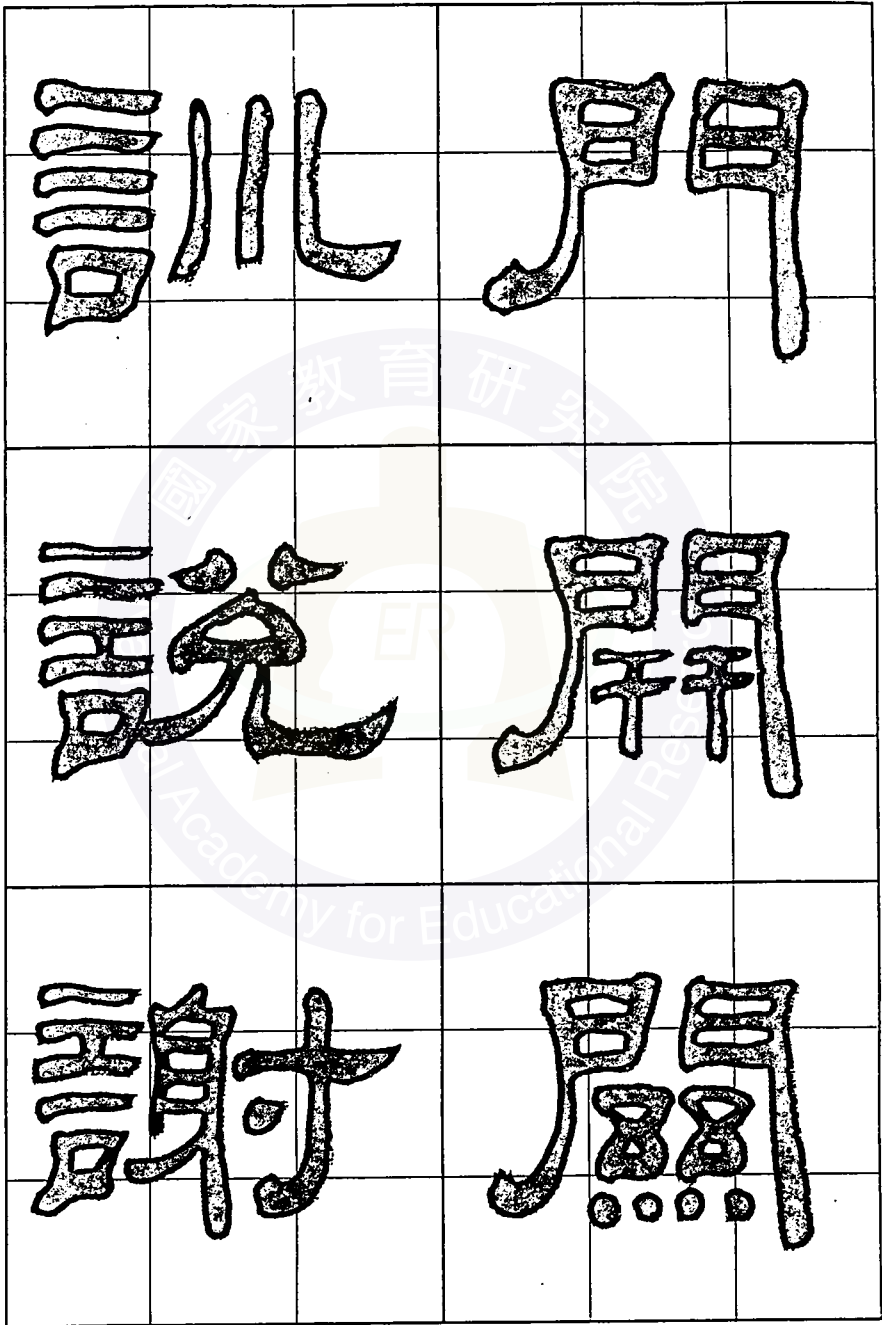 門開關
訓說謝
國家教育研究院
National Academy for Educational Research
ER